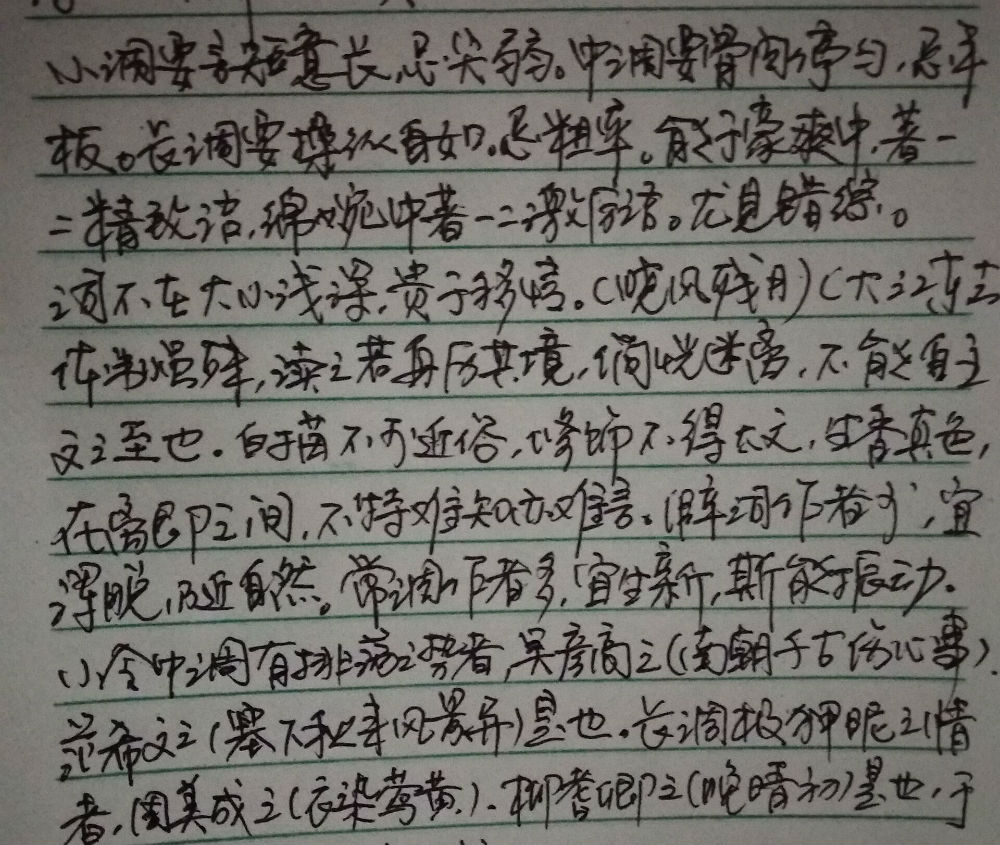 小调要言短意长,忌尖弱。中调要骨肉停匀,忌平
板。长调要操纵自如。忌粗率。能于豪爽中,著一
二精致语,绵婉中著一二激厉语。尤见错综。
词不在大小浅深,贵于移情。(晓风残月)(大江东去)
体制虽殊,读之若身历其境,惝恍迷离,不能自主
文之至也。白描不可近俗,修饰不得太文,生香真色,
在离即之间,不特难知亦难言。僻词作者少,宜
浑脱,乃近自然。常调作者多,宜生新,斯能振动。
小令中调有排荡之势者,吴彦高之(南朝千古伤心事).
范希文之(塞下秋来风景异)是也。长调极狎昵之情
者,周美成之(衣染莺黄).柳耆卿之(晚晴初)是也,于